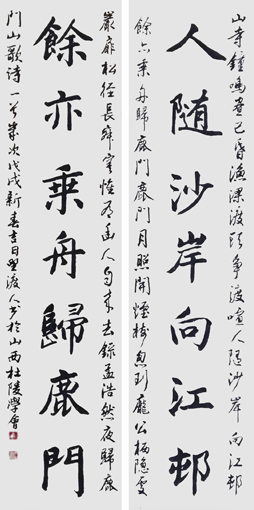 山寺鐘鳴晝已昏漁梁渡頭爭渡喧人随沙岸向江邨
人随沙岸向江邨
餘亦乘舟歸鹿門鹿門月照開煙樹忽到龐公栖隱處
巖扉松徑長寂寥惟有幽人自来去錄孟浩然夜歸鹿
餘亦乘舟歸鹿門
門山歌诗一首岁次戊戌新春吉日野渡人书於山西杜陵學會